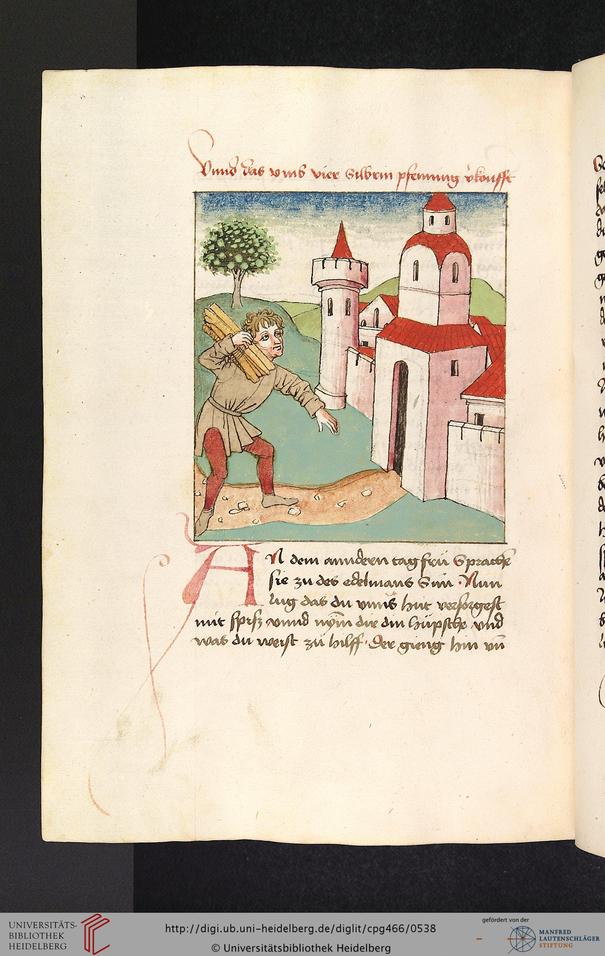 Vnnd das vmb vier silbrin pfenning v̓koufft
AN dem anndern tag frü Sprachē
sie zu des edelmans Sun · Nun
lug das du vnns hüt versorgest
mit spisz vnnd nym dir din hüpsche vnd
was du weist zů hilff · der gieng hin vn̄
UNIVERSITÄTS-
BIBLIOTHEK
HEIDELBERG
http://digi.ub.uni-heidelberg.de/diglit/cpg466/0538
© Universitätsbibliothek Heidelberg
gefördert von der
MANFRED
LAUTENSCHLÄGER
STIFTUNG